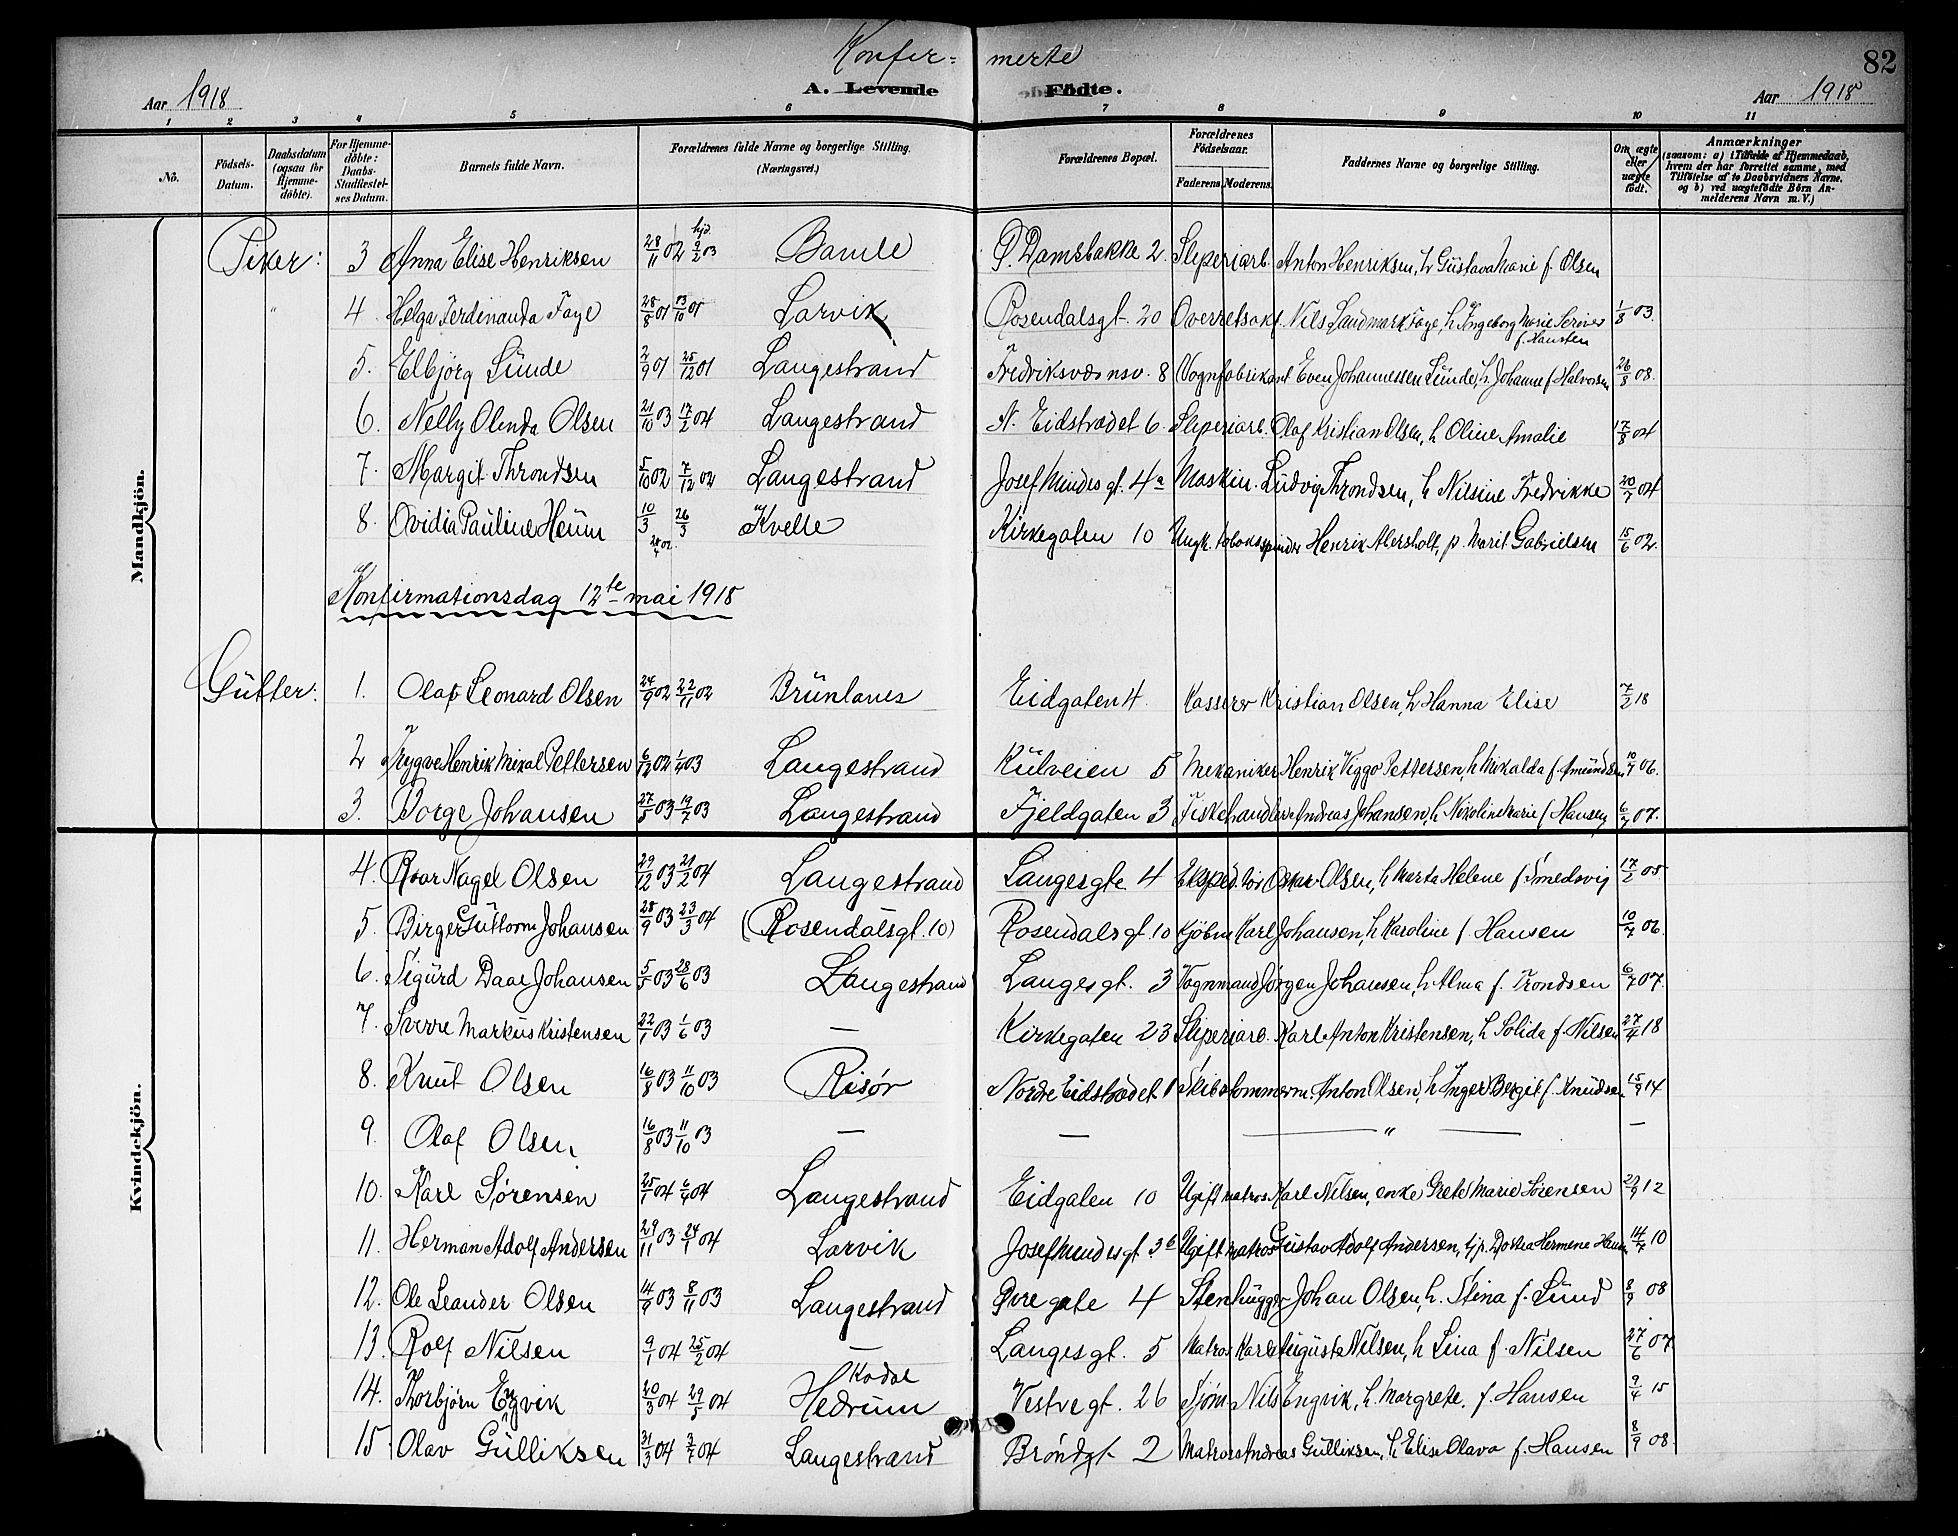 Konfir= merte
82
Aar 1918 A. Levende Födte. Aar 1918
1 2 3 4 5 6 7 8 9 10 11
No. Födsels-Datum. Daabsdatum (ogsaa för Hjemme-döbte). For Hjemme-döbte: Daabs-Stadfæstel-ses Datum. Barnets fulde Navn. Forældrenes fulde Navne og borgerlige Stilling. (Næringsvei.) Forældrenes Bopæl. Forældrenes Födselsaar. Faderens. Moderens. Faddernes Navne og borgerlige Stilling. Om ægte eller uægte födt. Anmærkninger (saasom: a) i Tilfælde af Hjemmedaab, hvem der har forrettet samme, med Tilföielse af to Daabsvidners Navne, og b) ved uægtefödte Börn An-melderens Navn m. V.)
Mandkjön.
Piker: 3 Anna Elise Henriksen 28/11 02 hjd. 9/2 03 Bamle Ø. Damsbakke 2. Sliperiarb. Anton Henriksen, h Gustava Marie f. Olsen
" 4. Helga Ferdinanda Faye 28/8 01 13/10 01 Larvik Rosendalsgt. 20 Overretssakf. Nils Landmark Faye, h. Ingeborg Marie f. Hansten 1/8 03.
5. Elbjörg Sunde 2/9 01 25/12 01 Langestrand Fredriksværnsv. 8 Vognfabrikant Even Johannessen Sunde, h. Johanne f Halvorsen 26/8 08.
6. Nelly Olenda Olsen 21/10 03 17/2 04 Langestrand N. Eidstrædet 6. Sliperiarb. Olaf Kristian Olsen, h Oline Amalie 17/8 04
7. Margit Throndsen 5/10 02 7/12 02 Langestrand Josef Mindes gt. 4a Maskin. Ludvig Throndsen, h Nilsine Fredrikke 20/7 04
8. Ovidia Pauline Heum 10/3 26/3 Kvelle Kirkegaten 10 Ungk. tobakspinder Henrik Alersholt, p. Marit Gabrielsen 15/6 02.
Konfirmationsdag 12te mai 1918
Gutter: 1. Olaf Leonard Olsen 24/9 02 22/11 02 Brunlanes Eidgaten 4. Kasserer Kristian Olsen, h Hanna Elise 7/2 18
2 Trygve Henrik Mikal Pettersen 6/12 02 1/4 03 Langestrand Kulveien 5 Mekaniker Henrik Viggo Pettersen, h Mikalda f. Amundsen 10/7 06.
3. Borge Johansen 27/5 03 19/7 03 Langestrand Fjeldgaten 3 Fiskehandler Andreas Johansen, h Nikoline Marie f Hansen 6/7 07.
Kvindekjön.
4. Roar Nagel Olsen 29/12 03 21/2 04 Langestrand Langesgte 4 Oskar Olsen, h Marta Helene f. Smedsvig 17/2 05
5. Birger Guttorm Johansen 28/9 03 23/3 04 (Rosendalsgt. 10) Rosendalsgt. 10 Kjöbm Karl Johansen, h Karoline f Hansen 10/7 06.
6. Sigurd Daae Johansen 5/5 03 28/6 03 Langestrand Langesgt. 3 Vognmand Jörgen Johansen, h Alma f. Trondsen 6/7 07.
7. Sverre Markus Kristensen 22/1 03 1/6 03 — Kirkegaten 23 Sliperiarb. Karl Anton Kristensen, h Solida f. Nilsen 27/4 18
8. Knut Olsen 16/8 03 11/10 03 Risør Nordre Eidstrædet 1 Skibstømmerm. Anton Olsen, h Inger Bergit f. Knudsen 15/9 14
9. Olaf Olsen 16/8 03 11/10 03 — — — " — —
10. Karl Sørensen 25/1 04 6/4 04 Langestrand Eidgaten 10 Ugift matros Karl Nilsen, enke Grete Marie Sörensen 29/9 12
11. Herman Adolf Andersen 29/11 03 24/1 04 Larvik Josef Mindes gt. 3b Ugift matros Gustav Adolf Andersen, tjp. Dortea Hermene Hansen 14/7 10
12. Ole Leander Olsen 14/9 03 8/11 03 Langestrand Øvregate 4 Stenhugger Johan Olsen, h. Stina f. Lund 8/9 08
13. Rolf Nilsen 9/1 04 25/2 04 — Langesgt. 5 Matros Karl August Nilsen, h Lina f. Nilsen 27/6 07
14. Thorbjörn Engvik 20/3 04 29/5 04 Kodal Hedrum Vestregt. 26 Sjöm Nils Engvik, h. Margrete. f. Hansen 9/4 15
15. Olav Gulliksen 31/3 04 3/7 04 Langestrand Bröndgt 2 Matros Andreas Gulliksen, h Elise Olava f. Hansen 8/9 08.